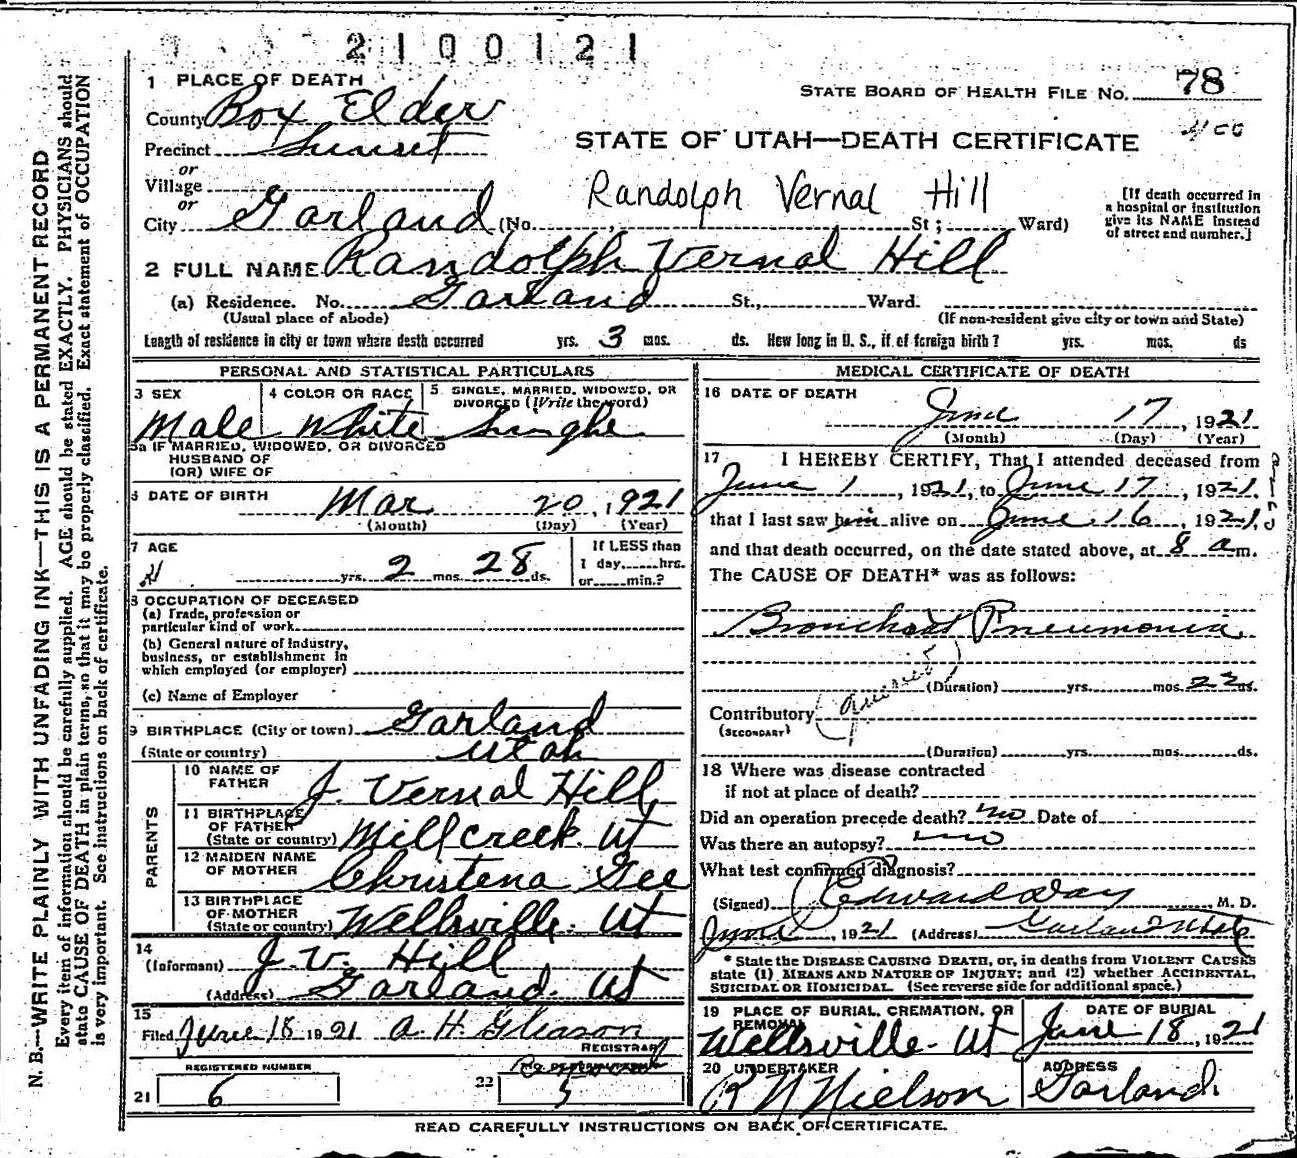 2100121
1 PLACE OF DEATH
STATE BOARD OF HEALTH FILE No. 78
County Box Elder
400
STATE OF UTAH—DEATH CERTIFICATE
Precinct Sunset
or
Village
Randolph Vernal Hill
[If death occurred in
a hospital or institution
give its NAME instead
of street and number.]
or
City Garland (No. St; Ward)
2 FULL NAME Randolph Vernal Hill
(a) Residence. No. Garland St., Ward.
(Usual place of abode) (If non-resident give city or town and State)
Length of residence in city or town where death occurred yrs. 3 mos. ds. How long in U. S., if of foreign birth? yrs. mos. ds
PERSONAL AND STATISTICAL PARTICULARS
3 SEX
4 COLOR OR RACE
5 SINGLE, MARRIED, WIDOWED, OR
DIVORCED (Write the word)
Male White Single
5a IF MARRIED, WIDOWED, OR DIVORCED
HUSBAND OF
(OR) WIFE OF
6 DATE OF BIRTH Mar 20, 1921
(Month) (Day) (Year)
7 AGE
yrs. 2 mos. 28 ds.
If LESS than
1 day hrs.
or min.?
8 OCCUPATION OF DECEASED
(a) Trade, profession or
particular kind of work
(b) General nature of industry,
business, or establishment in
which employed (or employer)
(c) Name of Employer
9 BIRTHPLACE (City or town) Garland
(State or country) Utah
PARENTS
10 NAME OF
FATHER J. Vernal Hill
11 BIRTHPLACE
OF FATHER
(State or country) Millcreek. Ut
12 MAIDEN NAME
OF MOTHER Christena Gee
13 BIRTHPLACE
OF MOTHER
(State or country) Wellsville. Ut
14
(Informant) J. V. Hill
(Address) Garland. Ut
15
Filed June 18 1921 A. H. Gleason
REGISTRAR
REGISTERED NUMBER
21 6
22 5
MEDICAL CERTIFICATE OF DEATH
16 DATE OF DEATH
June 17, 1921
(Month) (Day) (Year)
17 I HEREBY CERTIFY, That I attended deceased from
June 1, 1921, to June 17, 1921,
that I last saw him alive on June 16, 1921,
and that death occurred, on the date stated above, at 8 a m.
The CAUSE OF DEATH* was as follows:
Bronchial Pneumonia
(Duration) yrs. mos. 22 ds.
(queried)
Contributory
(SECONDARY)
(Duration) yrs. mos. ds.
18 Where was disease contracted
if not at place of death?
Did an operation precede death? no Date of
Was there an autopsy? no
What test confirmed diagnosis?
(Signed) Edward Day M. D.
June, 1921 (Address) Garland Utah
* State the DISEASE CAUSING DEATH, or, in deaths from VIOLENT CAUSES
state (1) MEANS AND NATURE OF INJURY; and (2) whether ACCIDENTAL,
SUICIDAL OR HOMICIDAL. (See reverse side for additional space.)
19 PLACE OF BURIAL, CREMATION, OR
REMOVAL
Wellsville. Ut
DATE OF BURIAL
June 18, 1921
20 UNDERTAKER
R N Nielson
ADDRESS
Garland.
READ CAREFULLY INSTRUCTIONS ON BACK OF CERTIFICATE.
N. B.—WRITE PLAINLY WITH UNFADING INK—THIS IS A PERMANENT RECORD
Every item of information should be carefully supplied. AGE should be stated EXACTLY. PHYSICIANS should
state CAUSE OF DEATH in plain terms, so that it may be properly classified. Exact statement of OCCUPATION
is very important. See instructions on back of certificate.